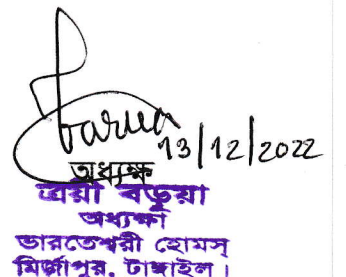 Barua 13/12/2022
অধ্যক্ষ
ত্রয়া বড়ুয়া
অধ্যক্ষা
ভারতেশ্বরী হোমস্
মির্জাপুর, টাঙ্গাইল।